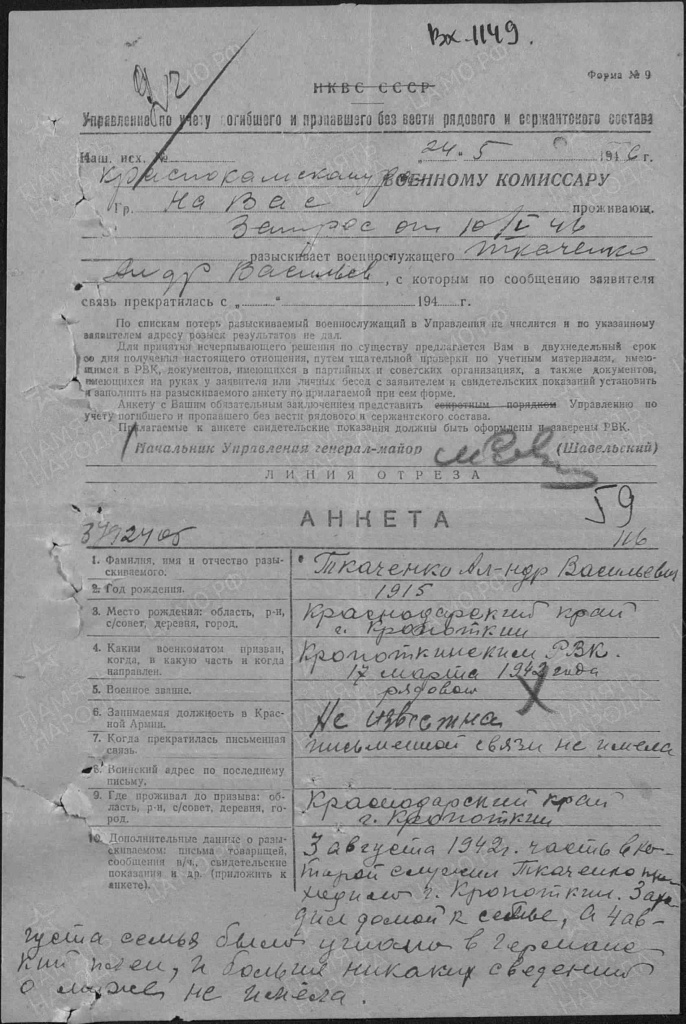 Вх.1149.
Форма № 9
НКВС СССР
Управление по учету погибшего и пропавшего без вести рядового и сержантского состава
Наш. исх. № "24" 5 1946 г.
Краснокамскому ВОЕННОМУ КОМИССАРУ
Гр. На Вас проживающ.
Запрос от 10/V 46
разыскивает военнослужащего Ткаченко
Андр Васильев, с которым по сообщению заявителя
связь прекратилась с „ “ 194 г.
По спискам потерь разыскиваемый военнослужащий в Управлении не числится и по указанному
заявителем адресу розыск результатов не дал.
Для принятия исчерпывающего решения по существу предлагается Вам в двухнедельный срок
со дня получения настоящего отношения, путем тщательной проверки по учетным материалам, имею-
щимся в РВК, документов, имеющихся в партийных и советских организациях, а также документов,
имеющихся на руках у заявителя или личных бесед с заявителем и свидетельских показаний установить
и заполнить на разыскиваемого анкету по прилагаемой при сем форме.
Анкету с Вашим обязательным заключением представить секретным порядком Управлению по
учету погибшего и пропавшего без вести рядового и сержантского состава.
Прилагаемые к анкете свидетельские показания должны быть оформлены и заверены РВК.
Начальник Управления генерал-майор (Шавельский)
ЛИНИЯ ОТРЕЗА
АНКЕТА
59
1. Фамилия, имя и отчество разы-
скиваемого.
Ткаченко Ал-ндр Васильевич
2. Год рождения.
1915
3. Место рождения: область, р-н,
с/совет, деревня, город.
Краснодарский край
г. Кропоткин
4. Каким военкоматом призван,
когда, в какую часть и когда
направлен.
Кропоткинским РВК.
17 марта 1942 года
5. Военное звание.
рядовой
6. Занимаемая должность в Крас-
ной Армии.
Не известна
7. Когда прекратилась письменная
связь.
письменной связи не имела
8. Воинский адрес по последнему
письму.
9. Где проживал до призыва: об-
ласть, р-н, с/совет, деревня, го-
род.
Краснодарский край
г. Кропоткин
10. Дополнительные данные о ра-
зыскиваемом: письма товарищей,
сообщения в/ч., свидетельские
показания и др. (приложить к
анкете).
3 августа 1942 г. часть в ко-
торой служил Ткаченко про-
ходило г. Кропоткин. Захо-
дил домой к семье, а 4 ав-
густа семья было угнано в германс-
кий плен, и больше никаких сведений
о муже не имела.